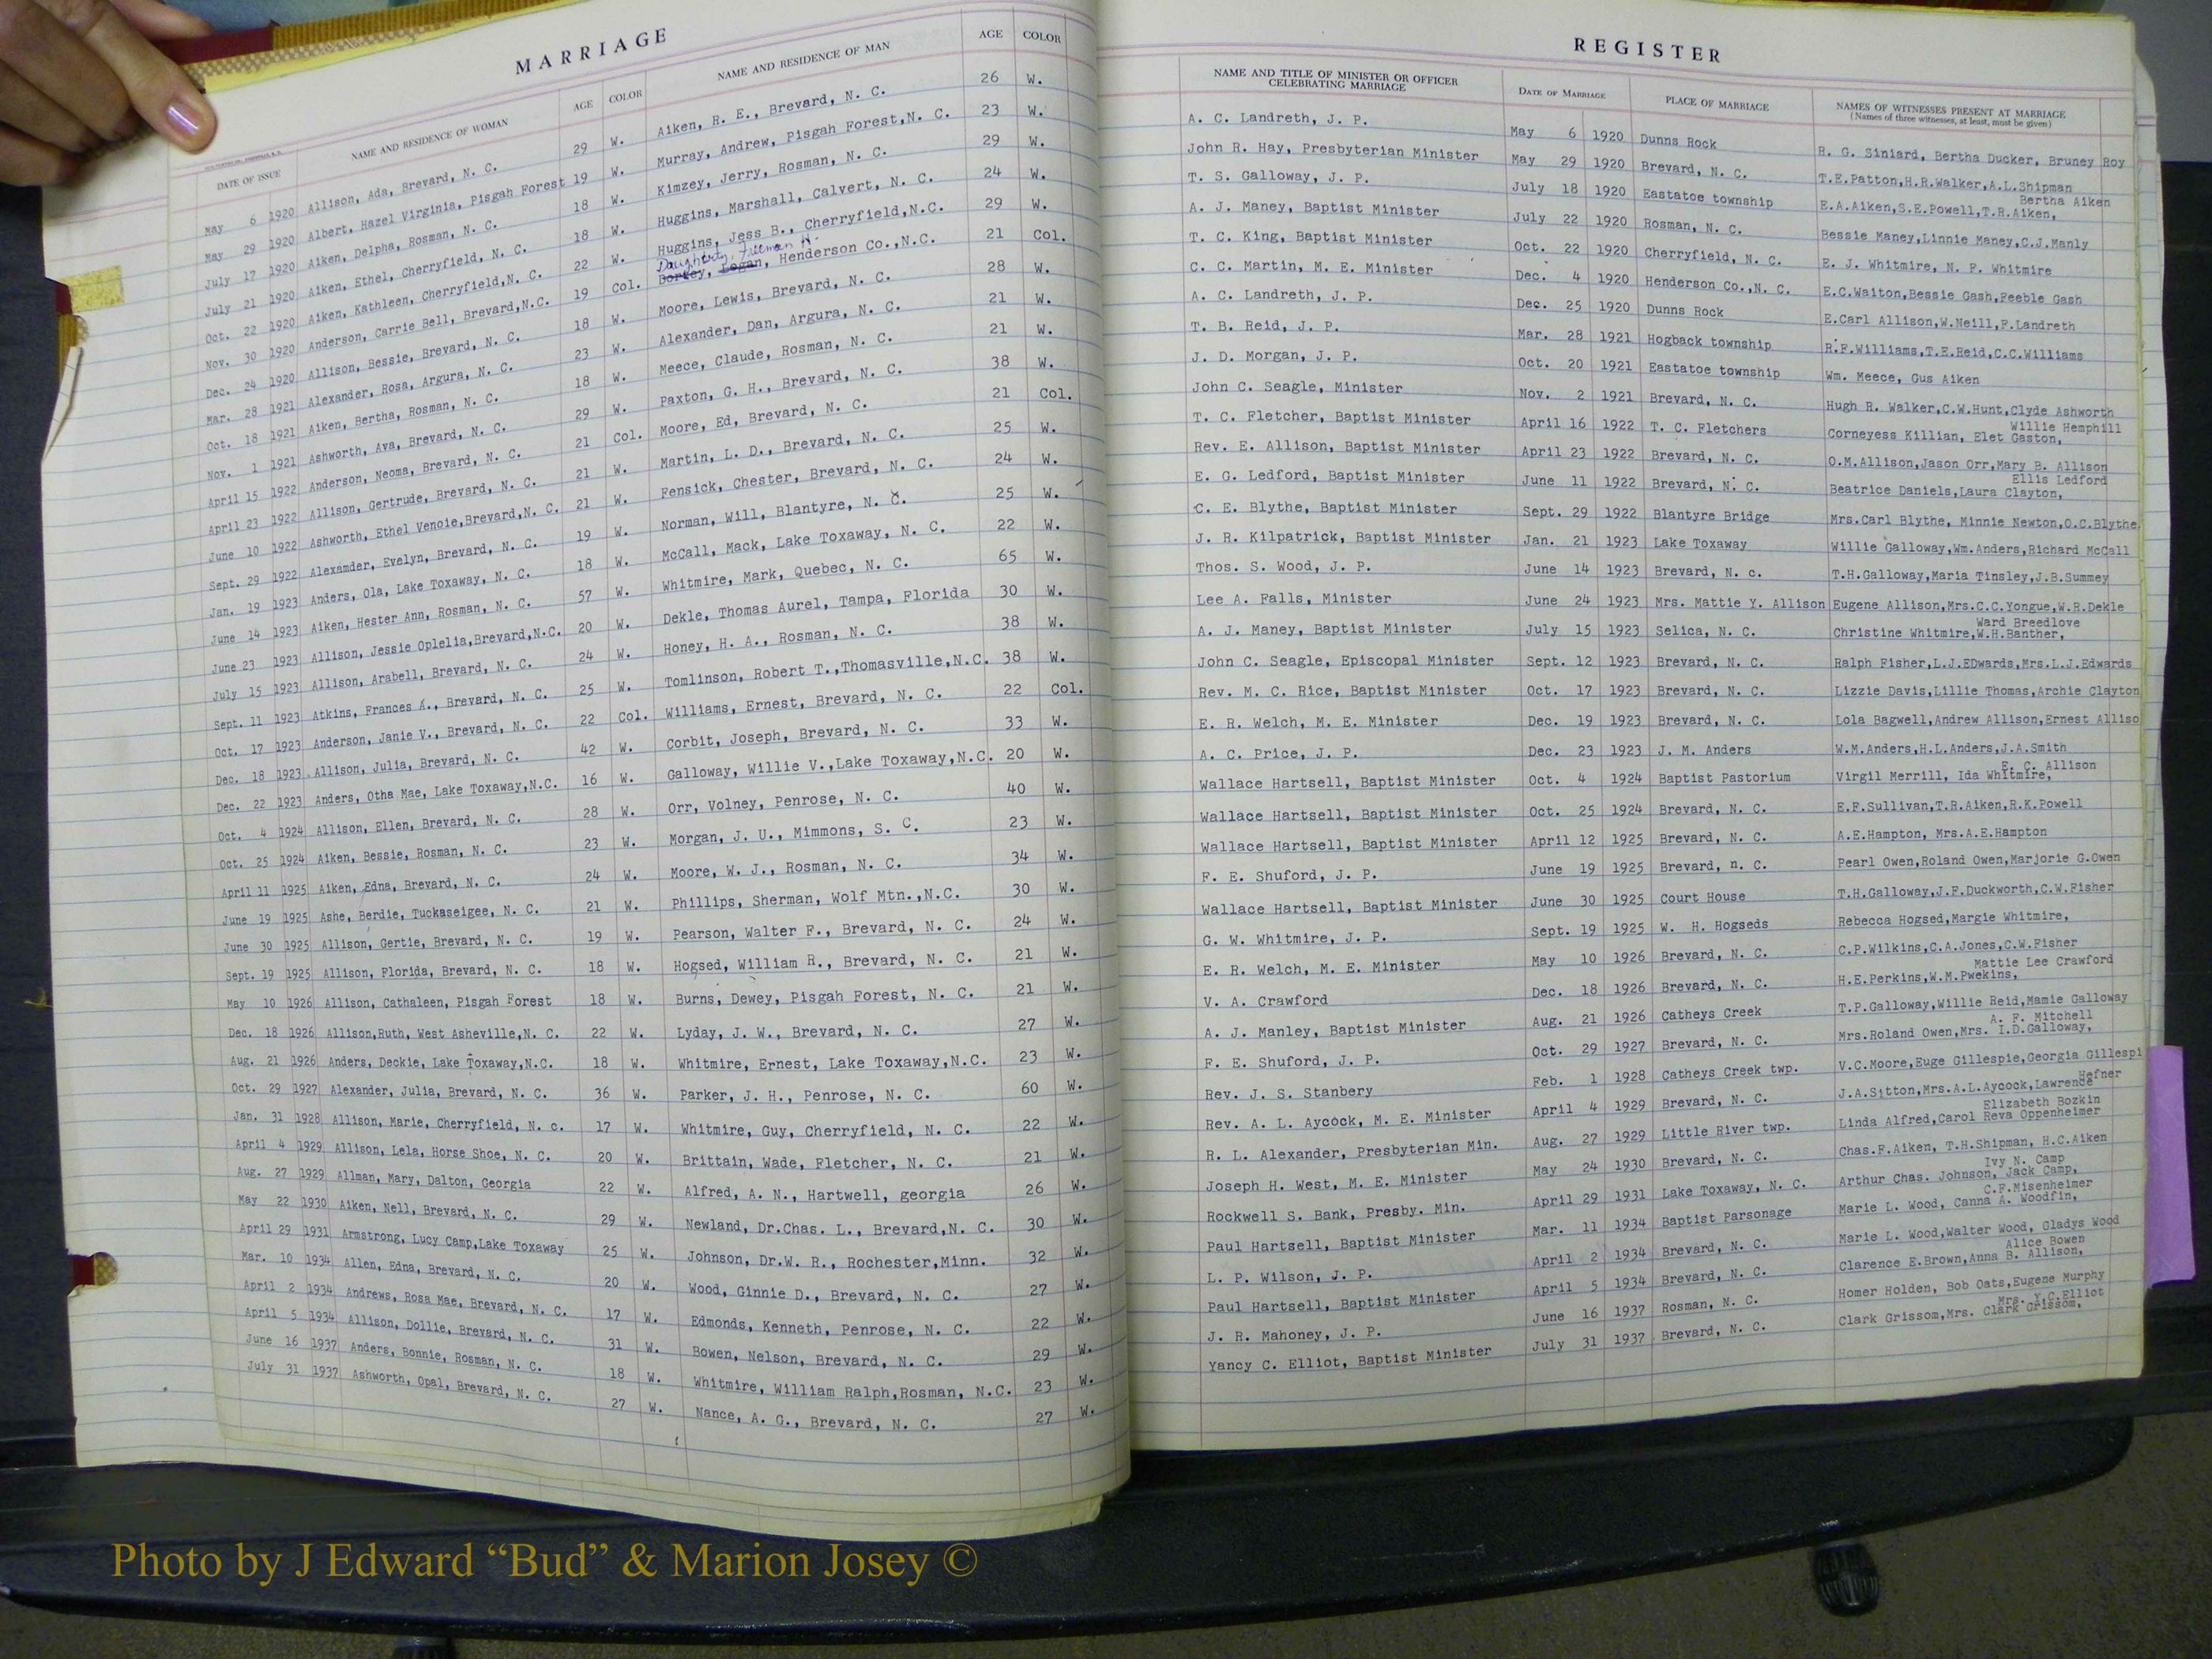 MARRIAGE
DATE OF ISSUE NAME AND RESIDENCE OF WOMAN AGE COLOR NAME AND RESIDENCE OF MAN AGE COLOR
May 6 1920 Allison, Ada, Brevard, N. C. 29 W. Aiken, R. E., Brevard, N. C. 26 W.
May 29 1920 Albert, Hazel Virginia, Pisgah Forest 19 W. Murray, Andrew, Pisgah Forest,N. C. 23 W.
July 17 1920 Aiken, Delpha, Rosman, N. C. 18 W. Kimzey, Jerry, Rosman, N. C. 29 W.
July 21 1920 Aiken, Ethel, Cherryfield, N. C. 18 W. Huggins, Marshall, Calvert, N. C. 24 W.
Oct. 22 1920 Aiken, Kathleen, Cherryfield,N. C. 22 W. Huggins, Jess B., Cherryfield,N.C. 29 W.
Daugherty,
Nov. 30 1920 Anderson, Carrie Bell, Brevard,N.C. 19 Col. Logan, Henderson Co.,N.C. 21 Col.
Dec. 24 1920 Allison, Bessie, Brevard, N. C. 18 W. Moore, Lewis, Brevard, N. C. 28 W.
Mar. 28 1921 Alexander, Rosa, Argura, N. C. 23 W. Alexander, Dan, Argura, N. C. 21 W.
Oct. 18 1921 Aiken, Bertha, Rosman, N. C. 18 W. Meece, Claude, Rosman, N. C. 21 W.
Nov. 1 1921 Ashworth, Ava, Brevard, N. C. 29 W. Paxton, G. H., Brevard, N. C. 38 W.
April 15 1922 Anderson, Neoma, Brevard, N. C. 21 Col. Moore, Ed, Brevard, N. C. 21 Col.
April 23 1922 Allison, Gertrude, Brevard, N. C. 21 W. Martin, L. D., Brevard, N. C. 25 W.
June 10 1922 Ashworth, Ethel Venoie,Brevard,N. C. 21 W. Fensick, Chester, Brevard, N. C. 24 W.
Sept. 29 1922 Alexamder, Evelyn, Brevard, N. C. 19 W. Norman, Will, Blantyre, N. C. 25 W.
Jan. 19 1923 Anders, Ola, Lake Toxaway, N. C. 18 W. McCall, Mack, Lake Toxaway, N. C. 22 W.
June 14 1923 Aiken, Hester Ann, Rosman, N. C. 57 W. Whitmire, Mark, Quebec, N. C. 65 W.
June 23 1923 Allison, Jessie Oplelia,Brevard,N.C. 20 W. Dekle, Thomas Aurel, Tampa, Florida 30 W.
July 15 1923 Allison, Arabell, Brevard, N. C. 24 W. Honey, H. A., Rosman, N. C. 38 W.
Sept. 11 1923 Atkins, Frances A., Brevard, N. C. 25 W. Tomlinson, Robert T.,Thomasville,N.C. 38 W.
Oct. 17 1923 Anderson, Janie V., Brevard, N. C. 22 Col. Williams, Ernest, Brevard, N. C. 22 Col.
Dec. 18 1923 Allison, Julia, Brevard, N. C. 42 W. Corbit, Joseph, Brevard, N. C. 33 W.
Dec. 22 1923 Anders, Otha Mae, Lake Toxaway,N.C. 16 W. Galloway, Willie V.,Lake Toxaway,N.C. 20 W.
Oct. 4 1924 Allison, Ellen, Brevard, N. C. 28 W. Orr, Volney, Penrose, N. C. 40 W.
Oct. 25 1924 Aiken, Bessie, Rosman, N. C. 23 W. Morgan, J. U., Mimmons, S. C. 23 W.
April 11 1925 Aiken, Edna, Brevard, N. C. 24 W. Moore, W. J., Rosman, N. C. 34 W.
June 19 1925 Ashe, Berdie, Tuckaseigee, N. C. 21 W. Phillips, Sherman, Wolf Mtn.,N.C. 30 W.
June 30 1925 Allison, Gertie, Brevard, N. C. 19 W. Pearson, Walter F., Brevard, N. C. 24 W.
Sept. 19 1925 Allison, Florida, Brevard, N. C. 18 W. Hogsed, William R., Brevard, N. C. 21 W.
May 10 1926 Allison, Cathaleen, Pisgah Forest 18 W. Burns, Dewey, Pisgah Forest, N. C. 21 W.
Dec. 18 1926 Allison,Ruth, West Asheville,N. C. 22 W. Lyday, J. W., Brevard, N. C. 27 W.
Aug. 21 1926 Anders, Deckie, Lake Toxaway,N.C. 18 W. Whitmire, Ernest, Lake Toxaway,N.C. 23 W.
Oct. 29 1927 Alexander, Julia, Brevard, N. C. 36 W. Parker, J. H., Penrose, N. C. 60 W.
Jan. 31 1928 Allison, Marie, Cherryfield, N. c. 17 W. Whitmire, Guy, Cherryfield, N. C. 22 W.
April 4 1929 Allison, Lela, Horse Shoe, N. C. 20 W. Brittain, Wade, Fletcher, N. C. 21 W.
Aug. 27 1929 Allman, Mary, Dalton, Georgia 22 W. Alfred, A. N., Hartwell, georgia 26 W.
May 22 1930 Aiken, Nell, Brevard, N. C. 29 W. Newland, Dr.Chas. L., Brevard,N. C. 30 W.
April 29 1931 Armstrong, Lucy Camp,Lake Toxaway 25 W. Johnson, Dr.W. R., Rochester,Minn. 32 W.
Mar. 10 1934 Allen, Edna, Brevard, N. C. 20 W. Wood, Ginnie D., Brevard, N. C. 27 W.
April 2 1934 Andrews, Rosa Mae, Brevard, N. C. 17 W. Edmonds, Kenneth, Penrose, N. C. 22 W.
April 5 1934 Allison, Dollie, Brevard, N. C. 31 W. Bowen, Nelson, Brevard, N. C. 29 W.
June 16 1937 Anders, Bonnie, Rosman, N. C. 18 W. Whitmire, William Ralph,Rosman, N.C. 23 W.
July 31 1937 Ashworth, Opal, Brevard, N. C. 27 W. Nance, A. G., Brevard, N. C. 27 W.
REGISTER
NAME AND TITLE OF MINISTER OR OFFICER CELEBRATING MARRIAGE DATE OF MARRIAGE PLACE OF MARRIAGE NAMES OF WITNESSES PRESENT AT MARRIAGE
(Names of three witnesses, at least, must be given)
A. C. Landreth, J. P. May 6 1920 Dunns Rock R. G. Siniard, Bertha Ducker, Bruney Roy
John R. Hay, Presbyterian Minister May 29 1920 Brevard, N. C. T.E.Patton,H.R.Walker,A.L.Shipman
Bertha Aiken
T. S. Galloway, J. P. July 18 1920 Eastatoe township E.A.Aiken,S.E.Powell,T.R.Aiken,
A. J. Maney, Baptist Minister July 22 1920 Rosman, N. C. Bessie Maney,Linnie Maney,C.J.Manly
T. C. King, Baptist Minister Oct. 22 1920 Cherryfield, N. C. E. J. Whitmire, N. P. Whitmire
C. C. Martin, M. E. Minister Dec. 4 1920 Henderson Co.,N. C. E.C.Waiton,Bessie Gash,Feeble Gash
A. C. Landreth, J. P. Dec. 25 1920 Dunns Rock E.Carl Allison,W.Neill,F.Landreth
T. B. Reid, J. P. Mar. 28 1921 Hogback township R.F.Williams,T.E.Reid,C.C.Williams
J. D. Morgan, J. P. Oct. 20 1921 Eastatoe township Wm. Meece, Gus Aiken
John C. Seagle, Minister Nov. 2 1921 Brevard, N. C. Hugh R. Walker,C.W.Hunt,Clyde Ashworth
Willie Hemphill
T. C. Fletcher, Baptist Minister April 16 1922 T. C. Fletchers Corneyess Killian, Elet Gaston,
Rev. E. Allison, Baptist Minister April 23 1922 Brevard, N. C. O.M.Allison,Jason Orr,Mary B. Allison
Ellis Ledford
E. G. Ledford, Baptist Minister June 11 1922 Brevard, N. C. Beatrice Daniels,Laura Clayton,
C. E. Blythe, Baptist Minister Sept. 29 1922 Blantyre Bridge Mrs.Carl Blythe, Minnie Newton,O.C.Blythe,
J. R. Kilpatrick, Baptist Minister Jan. 21 1923 Lake Toxaway Willie Galloway,Wm.Anders,Richard McCall
Thos. S. Wood, J. P. June 14 1923 Brevard, N. c. T.H.Galloway,Maria Tinsley,J.B.Summey
Lee A. Falls, Minister June 24 1923 Mrs. Mattie Y. Allison Eugene Allison,Mrs.C.C.Yongue,W.R.Dekle
Ward Breedlove
A. J. Maney, Baptist Minister July 15 1923 Selica, N. C. Christine Whitmire,W.H.Banther,
John C. Seagle, Episcopal Minister Sept. 12 1923 Brevard, N. C. Ralph Fisher,L.J.EDwards,Mrs.L.J.Edwards
Rev. M. C. Rice, Baptist Minister Oct. 17 1923 Brevard, N. C. Lizzie Davis,Lillie Thomas,Archie Clayton
E. R. Welch, M. E. Minister Dec. 19 1923 Brevard, N. C. Lola Bagwell,Andrew Allison,Ernest Alliso
A. C. Price, J. P. Dec. 23 1923 J. M. Anders W.M.Anders,H.L.Anders,J.A.Smith
E. C. Allison
Wallace Hartsell, Baptist Minister Oct. 4 1924 Baptist Pastorium Virgil Merrill, Ida Whitmire,
Wallace Hartsell, Baptist Minister Oct. 25 1924 Brevard, N. C. E.F.Sullivan,T.R.Aiken,R.K.Powell
Wallace Hartsell, Baptist Minister April 12 1925 Brevard, N. C. A.E.Hampton, Mrs.A.E.Hampton
F. E. Shuford, J. P. June 19 1925 Brevard, n. C. Pearl Owen,Roland Owen,Marjorie G.Owen
Wallace Hartsell, Baptist Minister June 30 1925 Court House T.H.Galloway,J.F.Duckworth,C.W.Fisher
G. W. Whitmire, J. P. Sept. 19 1925 W. H. Hogseds Rebecca Hogsed,Margie Whitmire,
E. R. Welch, M. E. Minister May 10 1926 Brevard, N. C. C.P.Wilkins,C.A.Jones,C.W.Fisher
Mattie Lee Crawford
V. A. Crawford Dec. 18 1926 Brevard, N. C. H.E.Perkins,W.M.Pwekins,
A. J. Manley, Baptist Minister Aug. 21 1926 Catheys Creek T.P.Galloway,Willie Reid,Mamie Galloway
A. F. Mitchell
F. E. Shuford, J. P. Oct. 29 1927 Brevard, N. C. Mrs.Roland Owen,Mrs. I.D.Galloway,
Rev. J. S. Stanbery Feb. 1 1928 Catheys Creek twp. V.C.Moore,Euge Gillespie,Georgia Gillespi
Hefner
Rev. A. L. Aycock, M. E. Minister April 4 1929 Brevard, N. C. J.A.Sitton,Mrs.A.L.Aycock,Lawrence
Elizabeth Bozkin
R. L. Alexander, Presbyterian Min. Aug. 27 1929 Little River twp. Linda Alfred,Carol Reva Oppenheimer
Joseph H. West, M. E. Minister May 24 1930 Brevard, N. C. Chas.F.Aiken, T.H.Shipman, H.C.Aiken
Ivy N. Camp
Rockwell S. Bank, Presby. Min. April 29 1931 Lake Toxaway, N. C. Arthur Chas. Johnson, Jack Camp,
C.F.Misenheimer
Paul Hartsell, Baptist Minister Mar. 11 1934 Baptist Parsonage Marie L. Wood, Canna A. Woodfin,
L. P. Wilson, J. P. April 2 1934 Brevard, N. C. Marie L. Wood,Walter Wood, Gladys Wood
Alice Bowen
Paul Hartsell, Baptist Minister April 5 1934 Brevard, N. C. Clarence E.Brown,Anna B. Allison,
J. R. Mahoney, J. P. June 16 1937 Rosman, N. C. Homer Holden, Bob Oats,Eugene Murphy
Mrs. Y.C.Elliot
Yancy C. Elliot, Baptist Minister July 31 1937 Brevard, N. C. Clark Grissom,Mrs. Clark Grissom,
Photo by J Edward “Bud” & Marion Josey ©